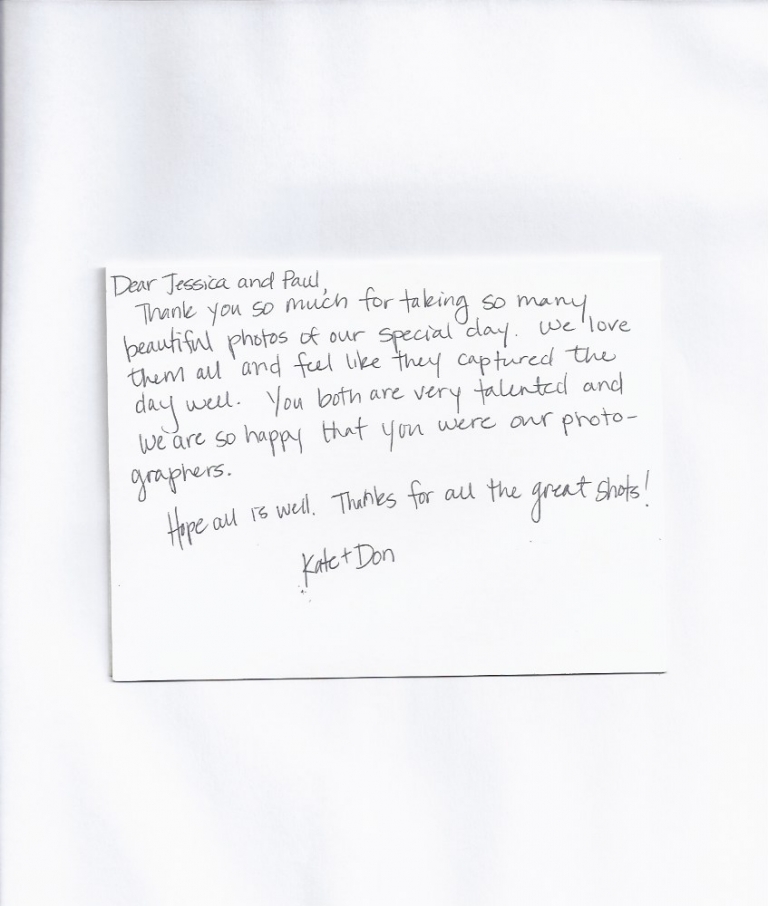 Dear Jessica and Paul,
Thank you so much for taking so many
beautiful photos of our special day. We love
them all and feel like they captured the
day well. You both are very talented and
we are so happy that you were our photo-
graphers.
Hope all is well. Thanks for all the great shots!
Kate + Don